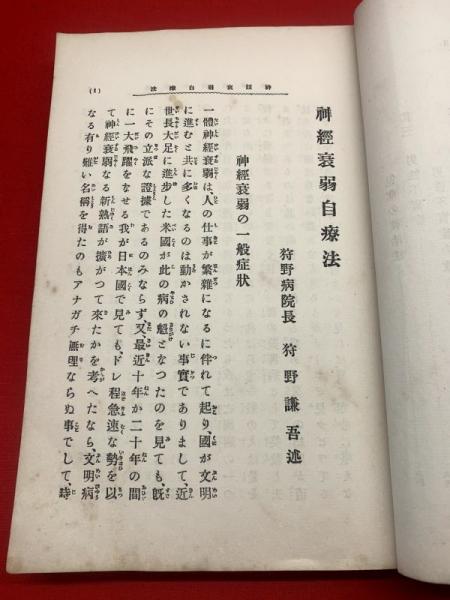 神經衰弱自療法
(1)
神經衰弱自療法
狩野病院長 狩野謙吾述
神經衰弱の一般症狀
一體神經衰弱は、人の仕事が繁雜になるに伴れて起り、國が文明
に進むと共に多くなるのは動かされない事實でありまして、近
世長大足に進步した米國が此の病の魁となつたのを見ても、旣
にその立派な證據であるのみならず、又、最近十年か二十年の間
に一大飛躍をなせる我が日本國で見ても、ドレ程急速な勢を以
て神經衰弱なる新熟語が擴がつて來たかを考へたなら、文明病
なる有り難い名稱を得たのもアナガチ無理ならぬ事でして、時